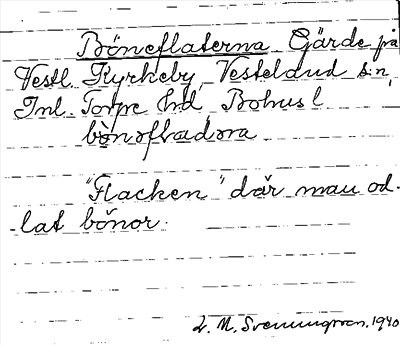 Böneflaterna Gärde på
Vestl. Kyrkeby, Vesteldud s:n,
Inl. Torpe hd, Bohus l
bönəfladəra
"Flacken" där man od-
-lat bönor.
L. N. Svenungsson. 1940